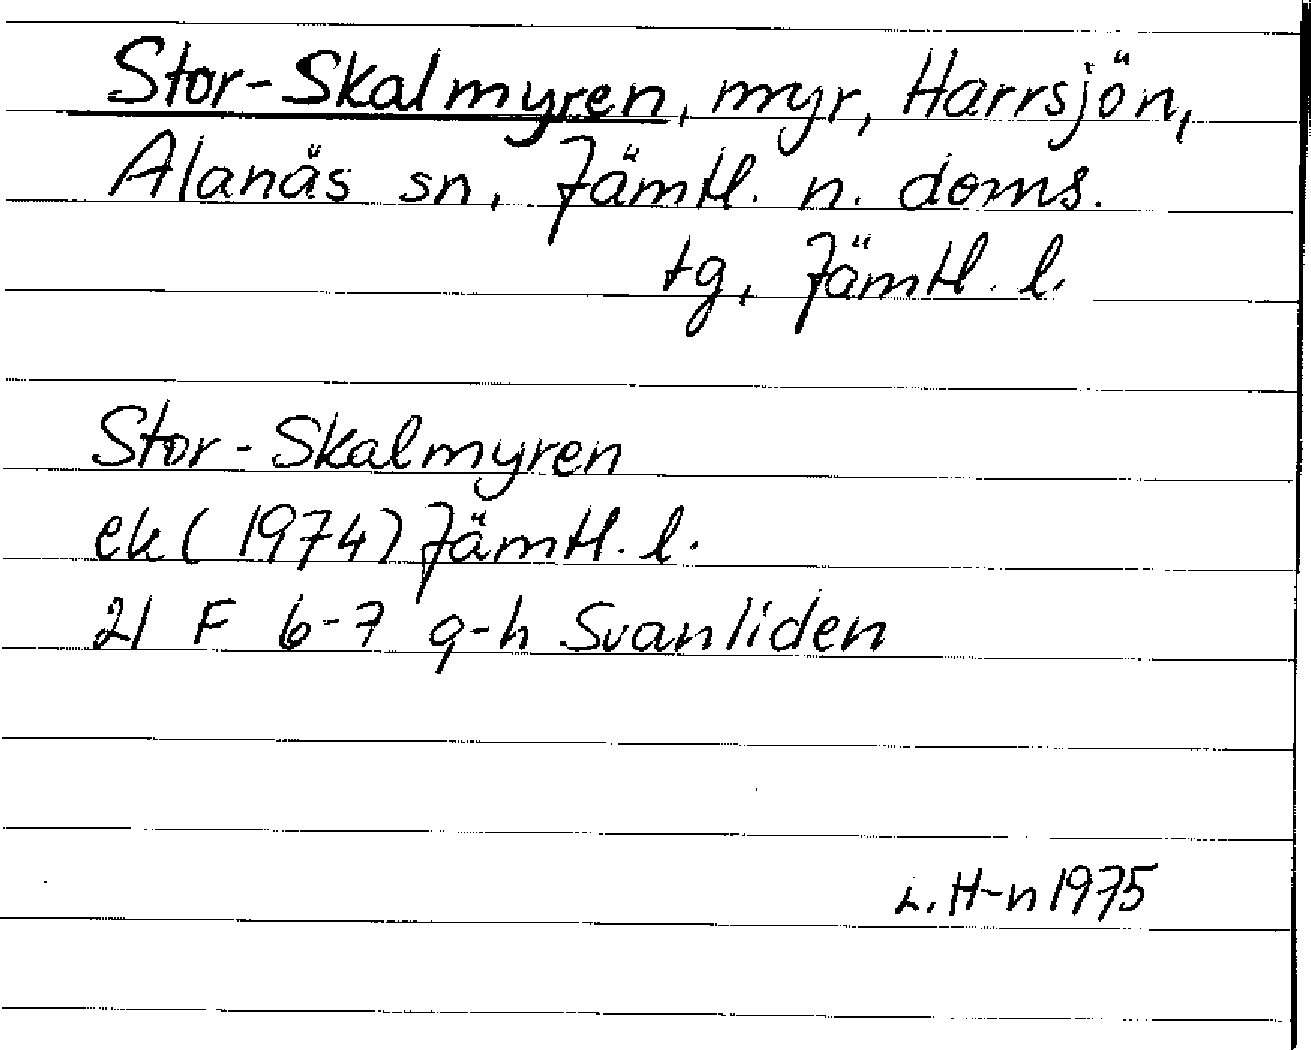 Stor-Skalmyren, myr, Harrsjön,
Alanäs sn, Jämtl. n. doms.
tg, Jämtl. l.
Stor-Skalmyren
ek (1974) Jämtl. l.
21 F 6-7 g-h Svanliden
L. H-n 1975